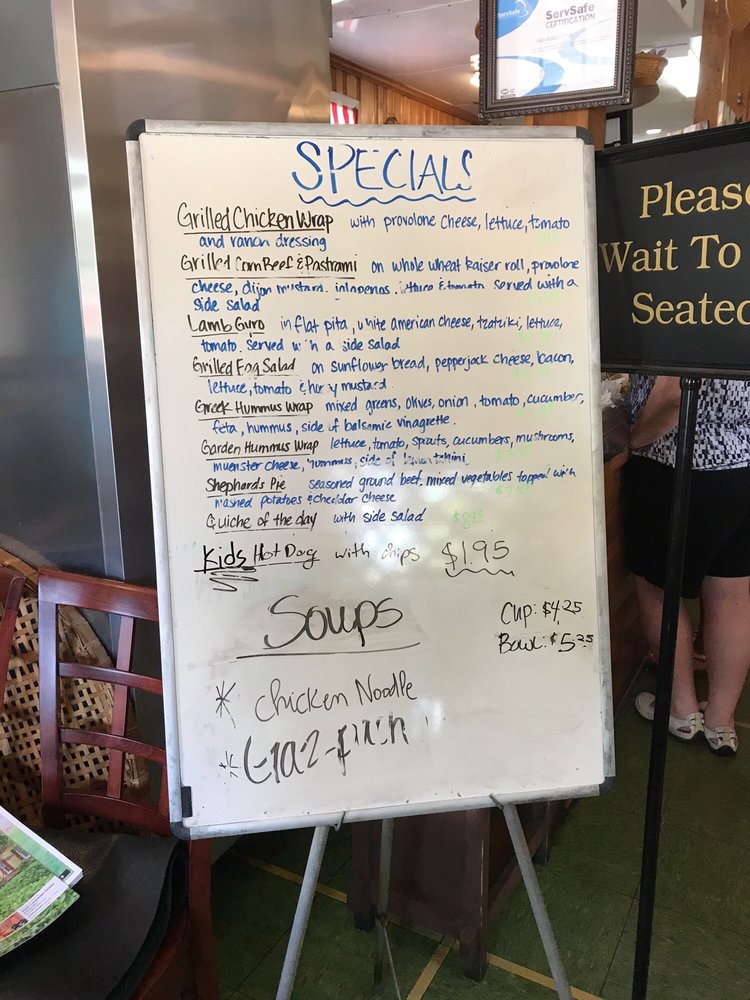 ServSafe
ServSafe
CERTIFICATION
Please
Wait To
Seated
SPECIALS
Grilled Chicken Wrap with provolone cheese, lettuce, tomato
and ranch dressing
Grilled Corn Beef & Pastrami on whole wheat kaiser roll, provolone
cheese, dijon mustard, jalapenos, lettuce & tomato served with a
side salad
Lamb Guro in flat pita, white american cheese, tzatziki, lettuce,
tomato. served with a side salad
Grilled Egg Salad on sunflower bread, pepperjack cheese, bacon,
lettuce, tomato & honey mustard.
Greek Hummus Wrap mixed greens, olives, onion, tomato, cucumber,
feta, hummus, side of balsamic vinagrette.
Garden Hummus Wrap lettuce, tomato, sprouts, cucumbers, mushrooms,
muenster cheese, hummus, side of lemon tahini
Shephards Pie seasoned ground beef, mixed vegetables topped with
mashed potatoes & cheddar cheese
Quiche of the day with side salad $8.95
Kids Hot Dog with chips $1.95
Soups
Cup: $4.25
Bowl: $5.25
* Chicken Noodle